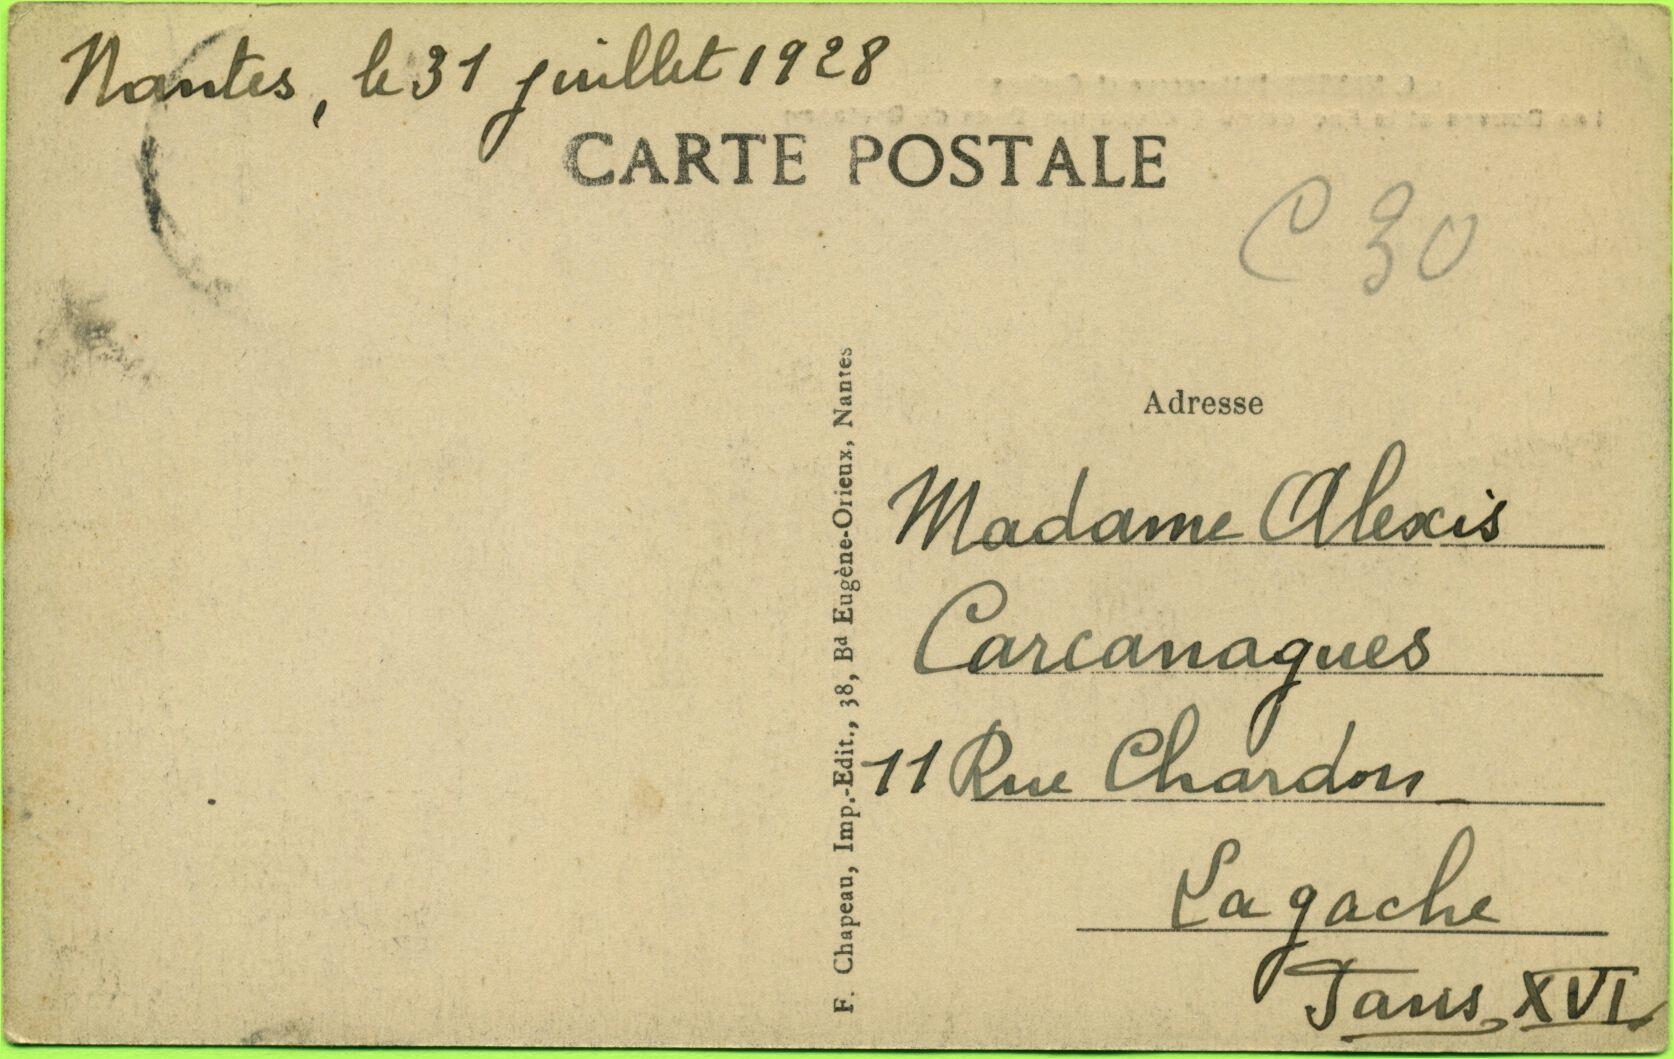 Nantes, le 31 juillet 1928
CARTE POSTALE
C 30
F. Chapeau, Imp.-Edit., 38, Bd Eugène-Orieux, Nantes
Adresse
Madame Alexis
Carcanagues
11 Rue Chardon
Lagache
Paris, XVI